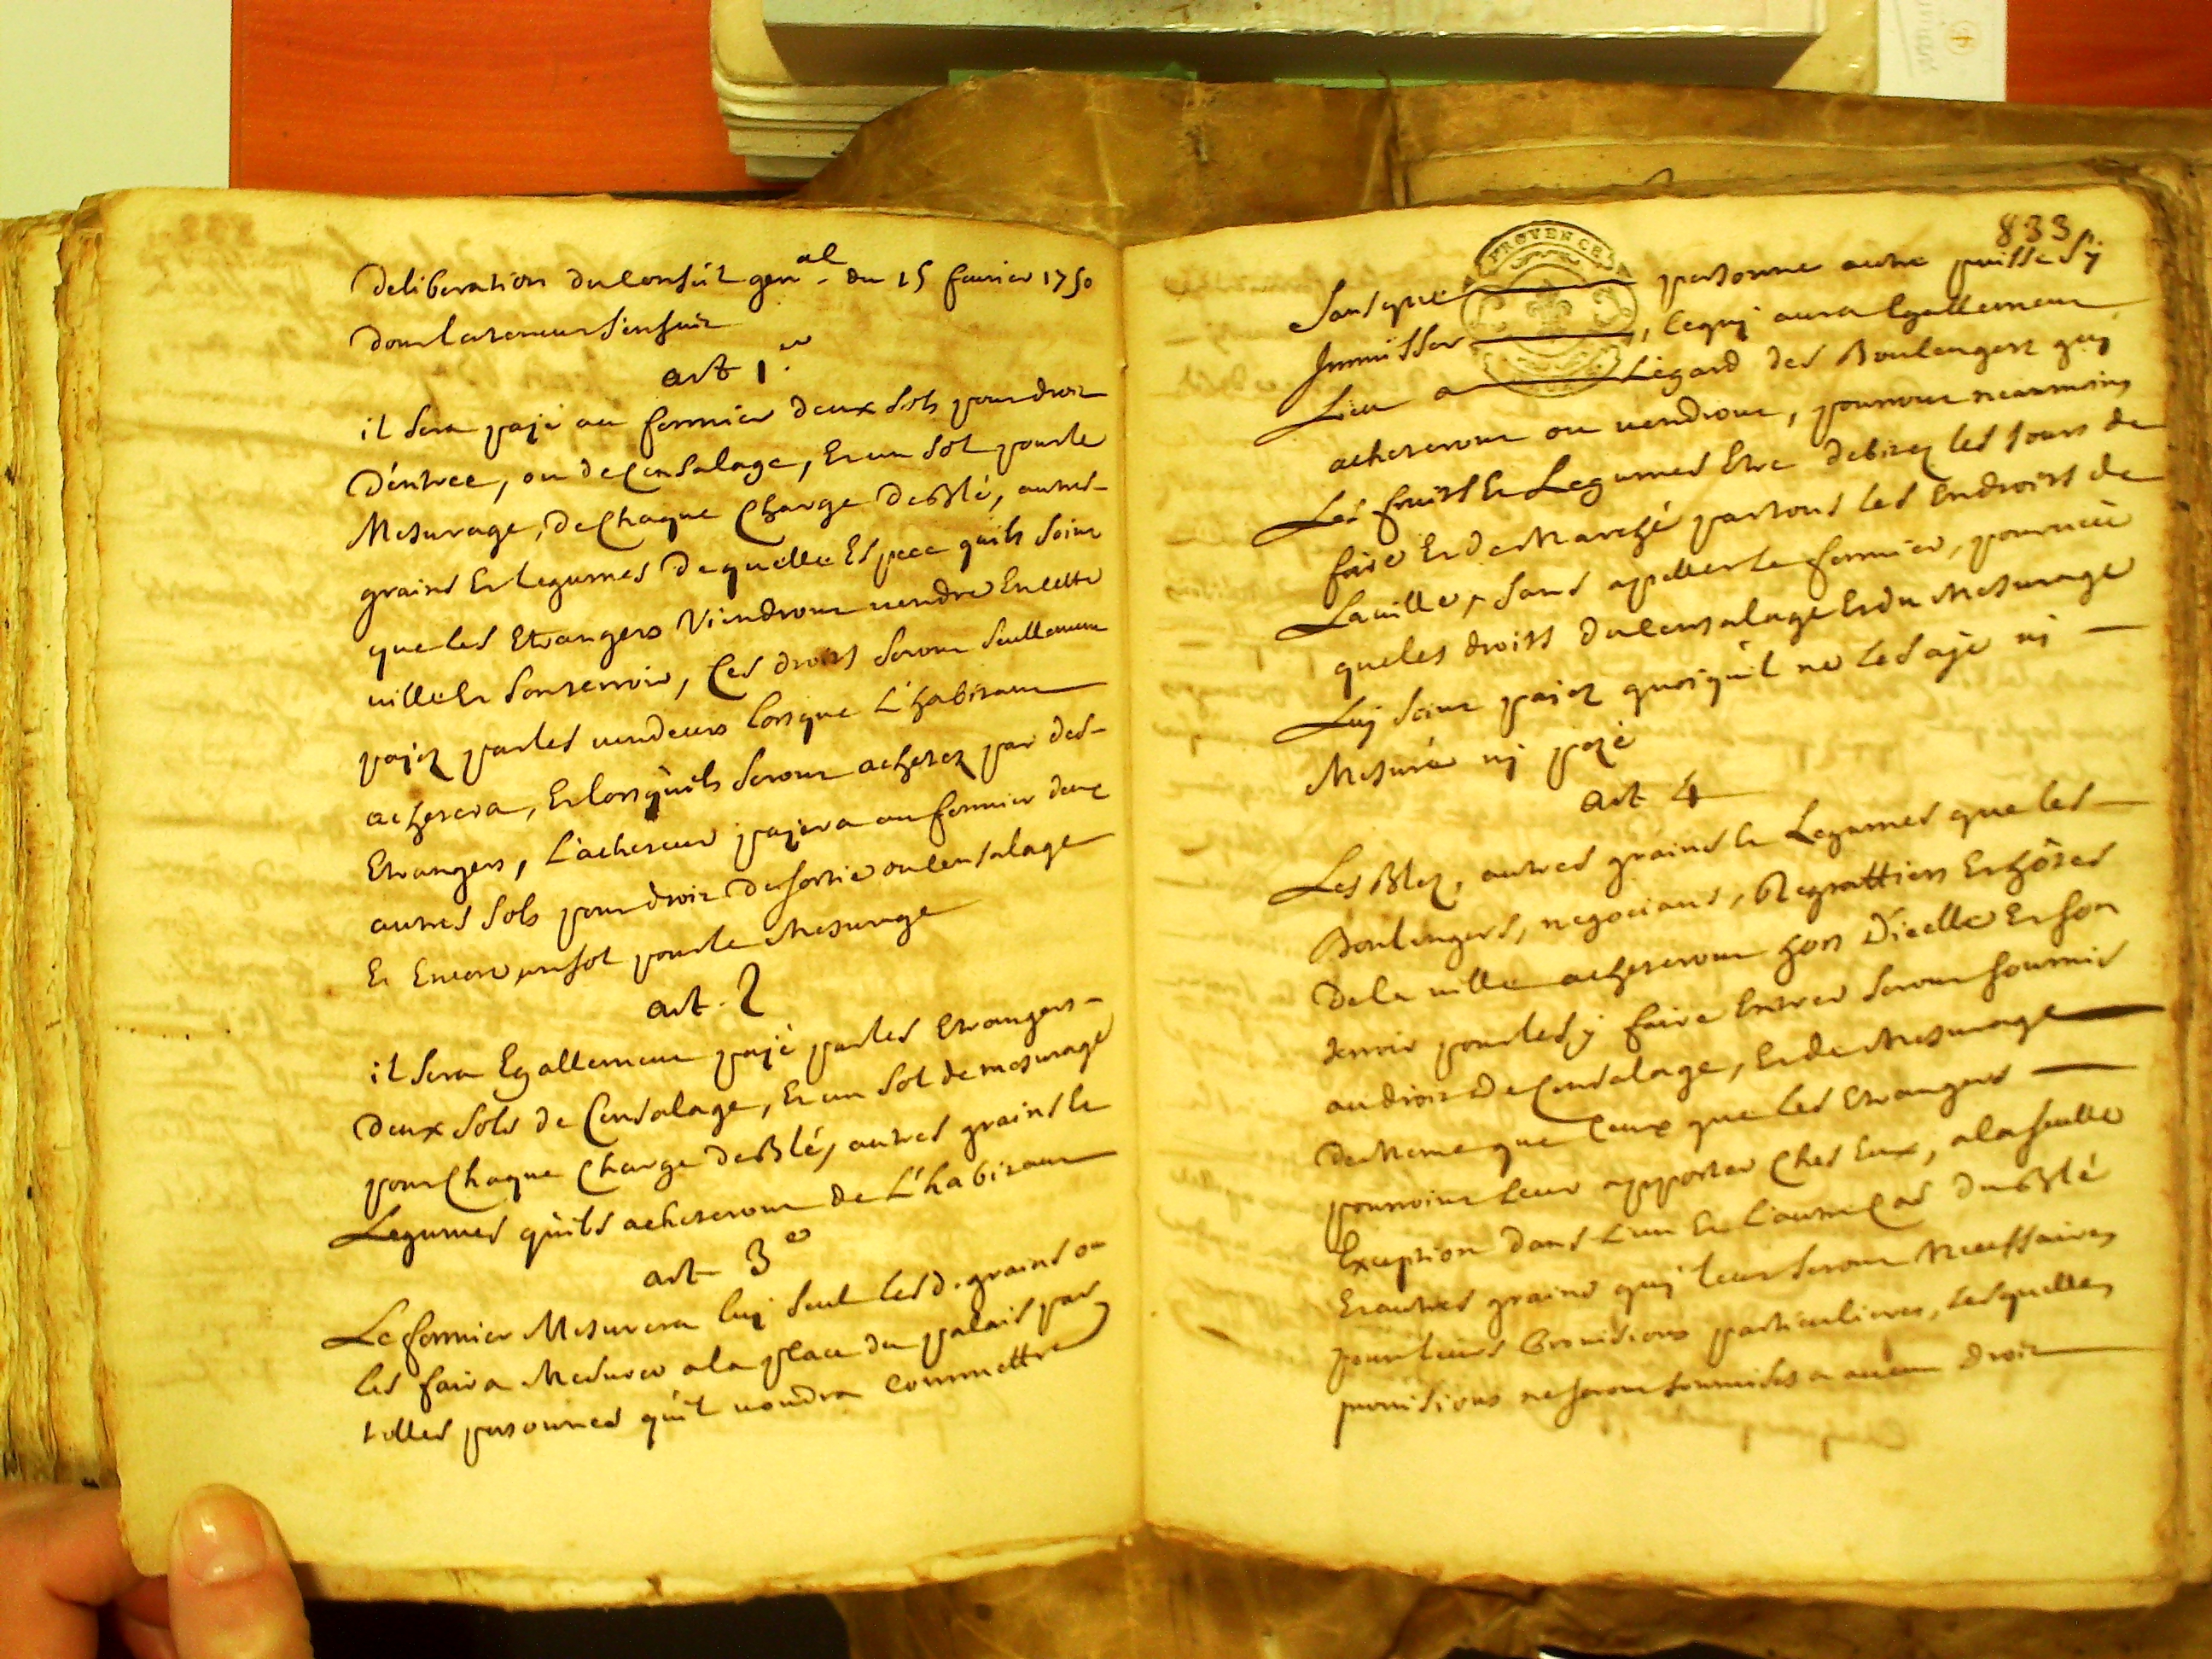 deliberation du conseil gen.al du 15 fevrier 1750
dont la teneur s'ensuit
art 1.er
il sera payé au fermier deux sols pour droit
d'éntree, ou de Censalage, Et un sol pour le
Mesurage, de Chaque Charge de Blé, autres
grains Et legumes de quelle Espece quils soint
que les Etrangers Viendront vendre En cette
ville Et son terroir, Ces droits seront seullement
payez par les vendeurs lorsque L'habitant
achetera, Et lorsquils seront achetez par des
Etrangers, L'acheteur payera au fermier deux
autres sols pour droit de sortie ou Censalage
Et Encore un sol pour le Mesurage
art. 2
il sera Egallement payé par les Etrangers
deux sols de Censalage, Et un sol de mesurage
pour Chaque Charge de Blé, autres grains Et
Legumes qu'ils acheteront de L'habitant
art 3e
Le fermier Mesurera luy seul lesd. grains ou
les faira Mesurer a la place du palais par
telles personnes qu'il voudra Commettre
833
Sans que personne autre puisse s'y
PROVENCE
Immisser, ce quy aura Egallement
Lieu a L'égard des Boulengers quy
acheteront ou vendront, pourront neanmoins
Les fruits Et Legumes Etre debitez les Jours de
foire Et de Marché par tous les Endroits de
La ville, sans apeller le fermier, pourvû
que les droits du Censalage Et du Mesurage
Luy soint payez quoiqu'il ne les aye ni
Mesuré ny pezé
art 4
Les Blez, autres grains Et Legumes que les
Boulengers, negociants, Regrattiers Et hôtes
de la ville acheteront hors D'icelle Et son
terroir pour les y faire Entrer seront soumis
au droit de Censalage, Et de Mesurage
de Meme que Ceux que les Etrangers
pourroint leur apporter Ches Eux, a la seulle
Exception dans L'un Et L'autre Cas du Blé
Et autres grains quy leur seront Necessaires
pour leurs Provisions particulieres, lesquelles
provisions ne seront soumises a aucun droit